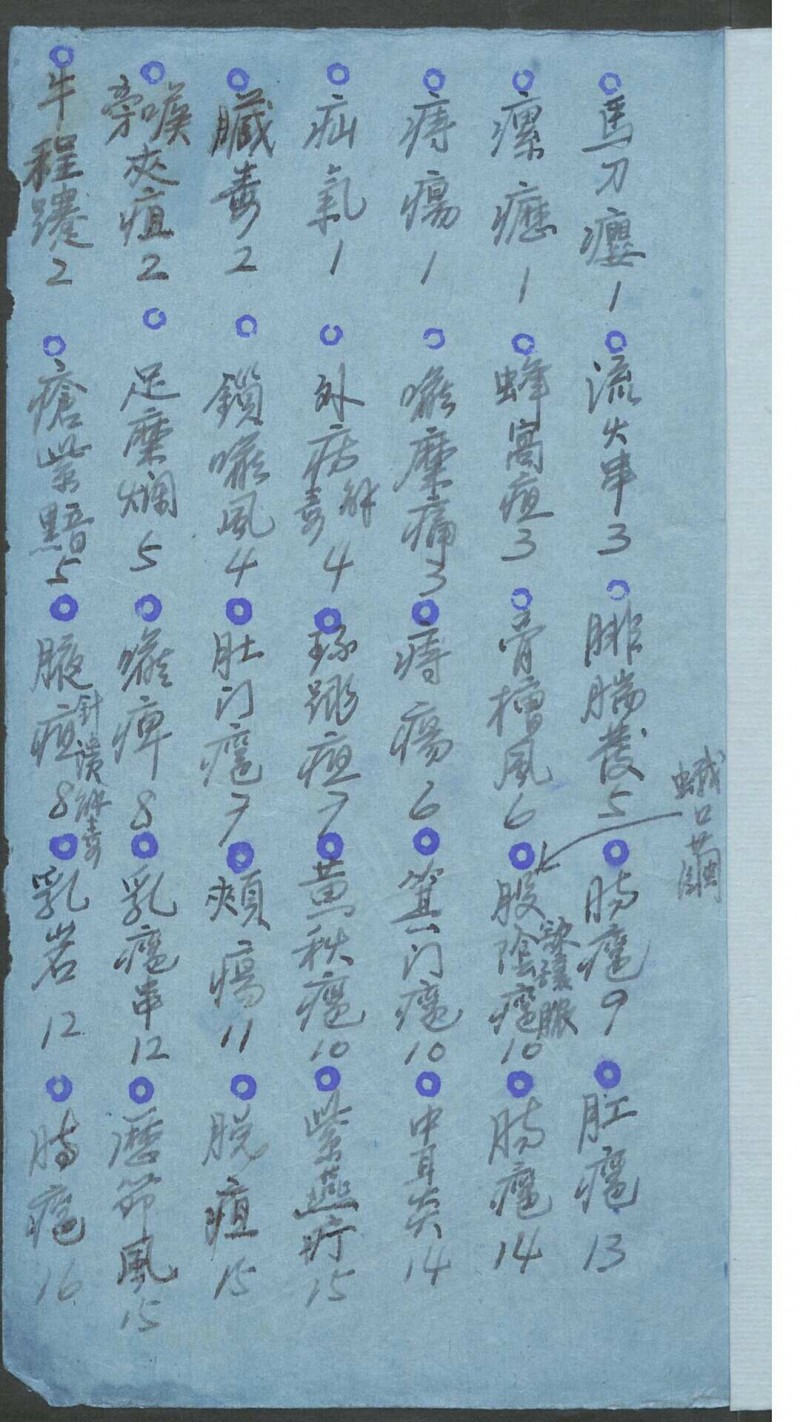 馬刀癭1
流火串3
腓腨發5
腸癰9
肛癰13
瘰癧1
蜂窩疽3
骨槽風6
股陰癰10
腸癰14
痔瘍1
喉糜痛3
痔瘍6
箕門癰10
中耳炎14
疝氣1
外疡 4
琢踝疽7
黃秋癰10
紫燕疔15
臟毒2
鎖喉風4
肚门癰7
頰瘍11
脱疽15
夾疽2
足糜爛5
喉痺8
乳癰串12
歷節風15
牛程蹇2
瘡紫黯5
腋疽8
乳岩12
腸癰16